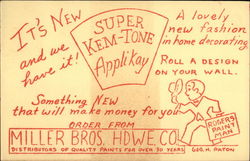 IT'S NEW
and we
have it!
SUPER
KEM-TONE
Applikay
A lovely
new fashion
in home decorating
ROLL A DESIGN
ON YOUR WALL.
Something NEW
that will make money for you
ORDER FROM
MILLER BROS. HDWE. CO.
DISTRIBUTORS OF QUALITY PAINTS FOR OVER 30 YEARS
ROGERS
PAINT
MAN
GEO. H. PATON